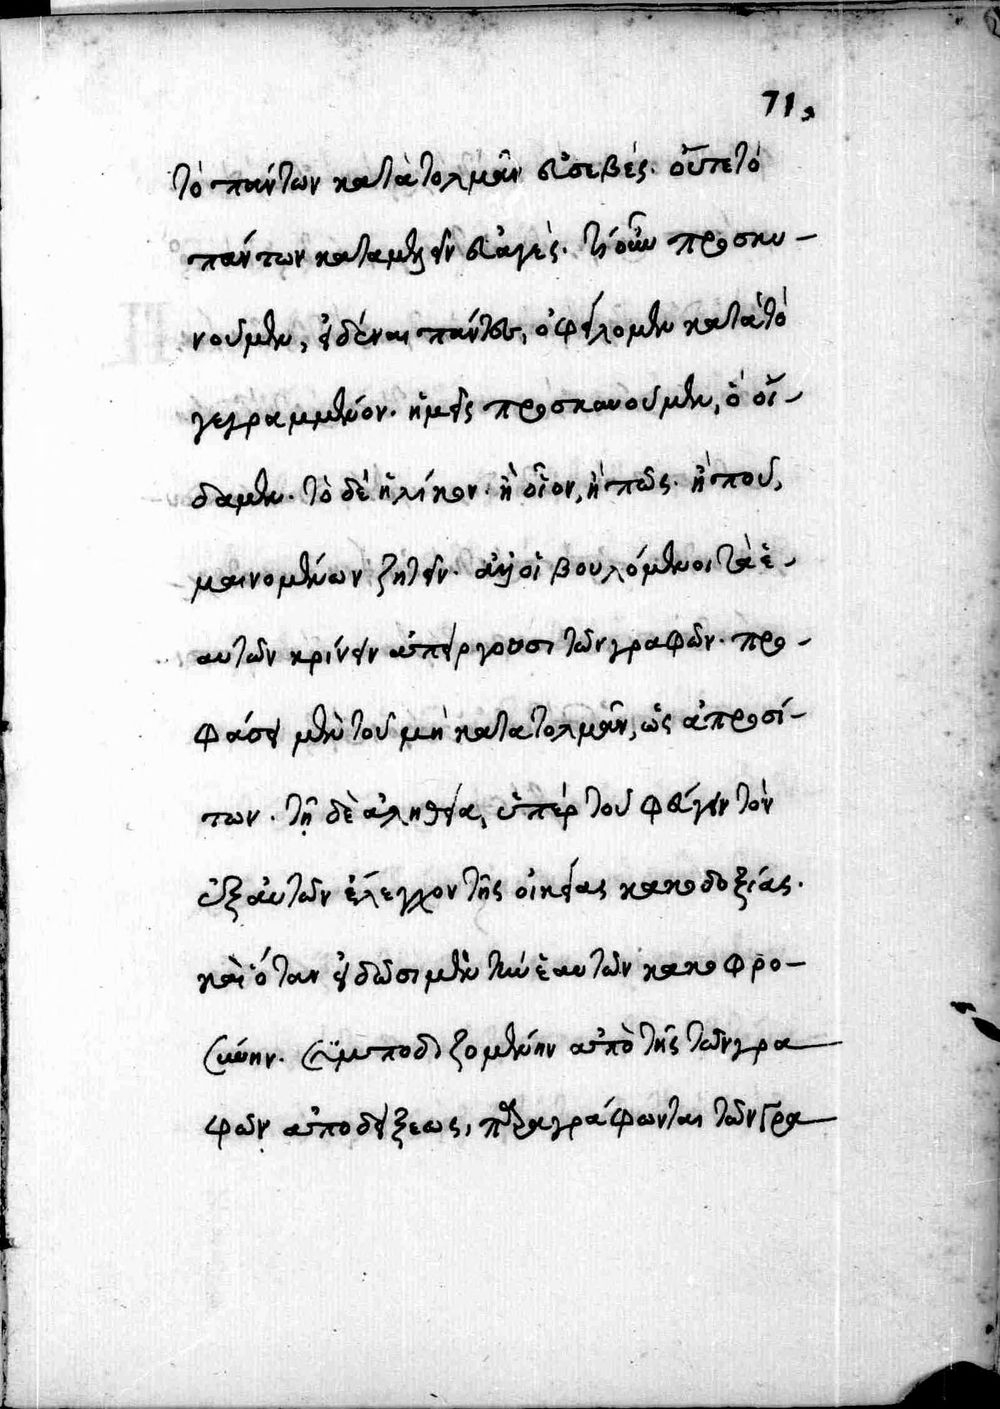 71,
τὸ πάντων κατατολμᾶν εὐσεβές. οὔτε τὸ
πάντων καταμύειν εὐαγές. τί οὖν προσκυ-
νοῦμεν, εἰδέναι πάντως, ὀφείλομεν κατὰ τὸ
γεγραμμένον. ἡμεῖς προσκυνοῦμεν, ὃ οἴ-
δαμεν. τὸ δὲ ἡλίκον. ἢ οἷον, ἢ πῶς. ἢ ποῦ,
μαινομένων ζητεῖν. οἱ βουλόμενοι τὰ ἑ-
αυτῶν κρίνειν ἀπείργουσι τῶν γραφῶν. προ-
φάσει μὲν τοῦ μὴ κατατολμᾶν, ὡς ἀπροσί-
των. τῇ δὲ ἀληθείᾳ, ὑπὲρ τοῦ φεύγειν τὸν
ἐξ αὐτῶν ἔλεγχον τῆς οἰκείας κακοδοξίας.
καὶ ὅταν εἰδῶσι μὲν τὴν ἑαυτῶν κακοφρο-
σύνην. ἀπὸ τῆς τῶν γρα
φῶν ἀποδείξεως, παραγράφωνται τῶν γρα